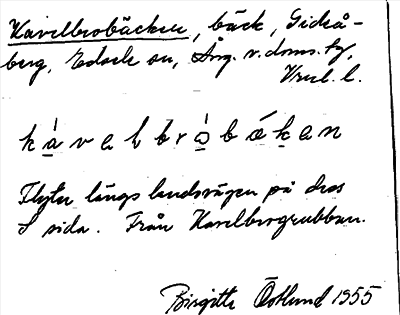 Kavelbrobäcken, bäck, Gideå-
berg, Edsele sn, Ång. v. doms. fg,
l.
kavalbrobäkan
Flyter längs landsvägen på dess
S sida. Från Kavelbrogrubban.
Birgitta Östlund 1955